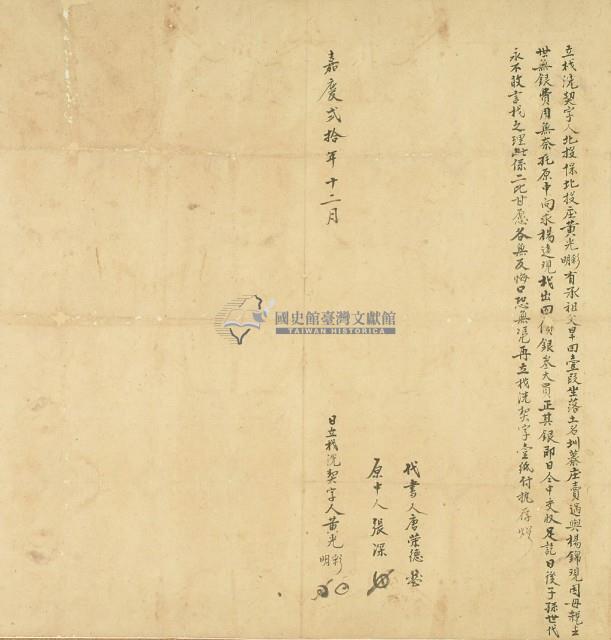 立找洗契字人北投保北投庄黃光彩明有承祖父旱田壹段坐落土名圳藔庄賣過與楊錦現因母親去
世無銀費用無奈托原中向求楊逵現找出四價銀叁大員正其銀即日仝中交收足訖日後子孫世代
永不敢言找之理此係二比甘愿各無反悔口恐無憑再立找洗契字壹紙付執存炤
代書人唐榮德
原中人張深
嘉慶弍拾年十二月
日立找洗契字人黃光彩明
國史館臺灣文獻館
TAIWAN HISTORICA